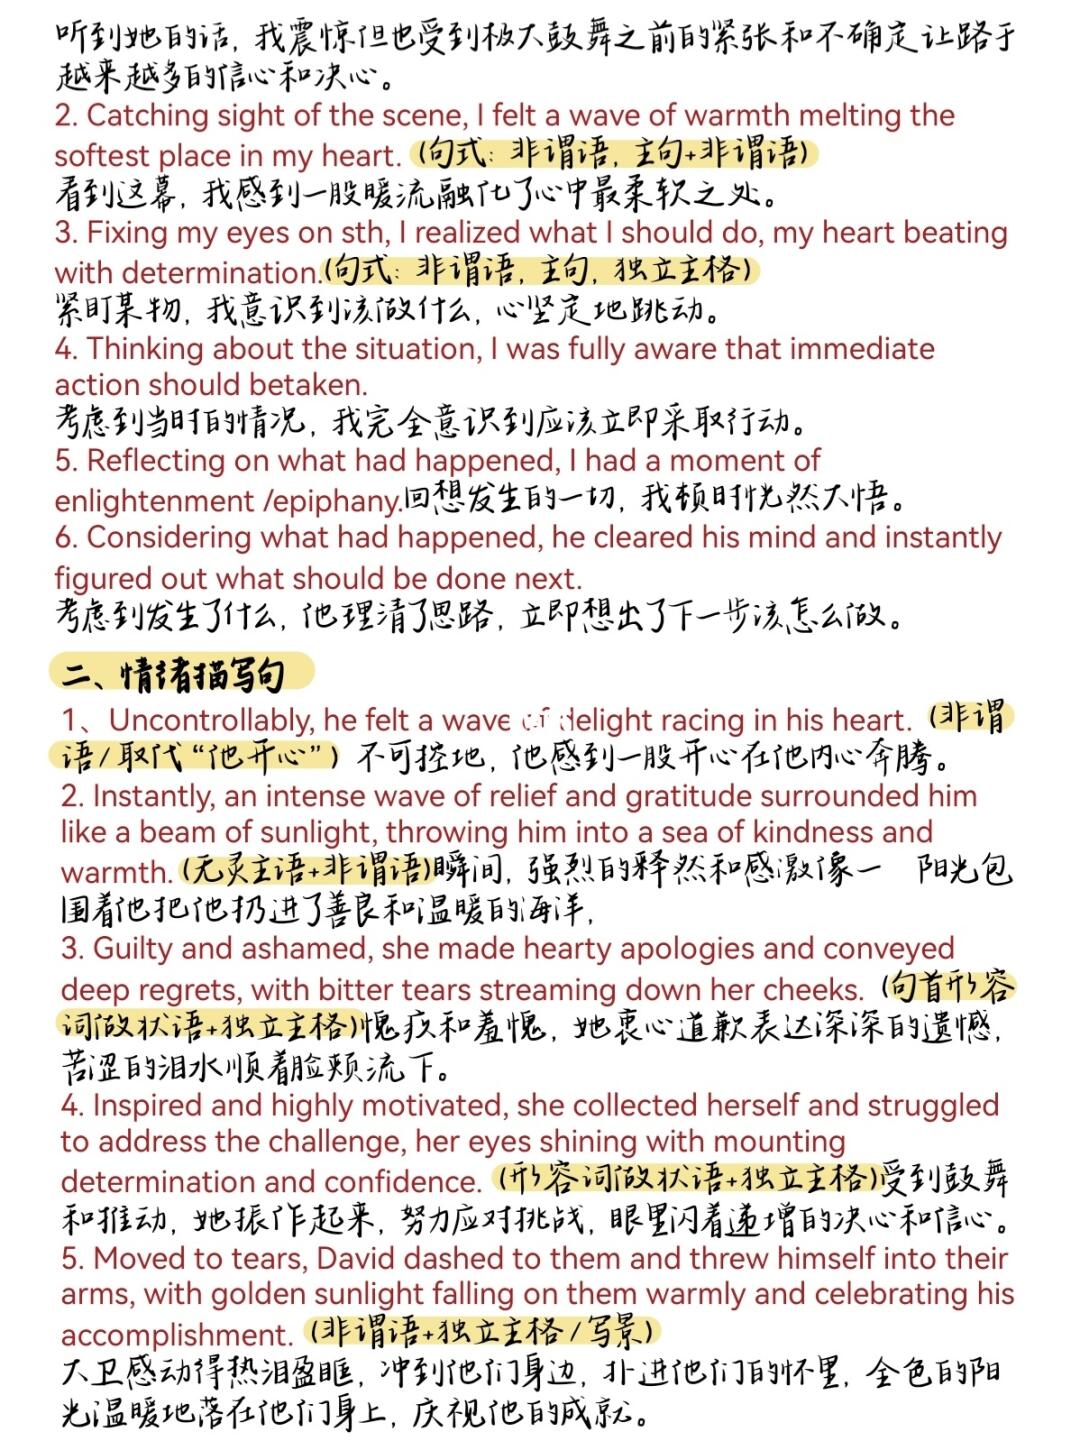 听到她的话, 我震惊但也受到极大鼓舞之前的紧张和不确定让路于
越来越多的信心和决心。
2. Catching sight of the scene, I felt a wave of warmth melting the
softest place in my heart. (句式: 非谓语, 主句+非谓语)
看到这幕, 我感到一股暖流融化了心中最柔软之处。
3. Fixing my eyes on sth, I realized what I should do, my heart beating
with determination.(句式: 非谓语, 主句, 独立主格)
紧盯某物, 我意识到该做什么, 心坚定地跳动。
4. Thinking about the situation, I was fully aware that immediate
action should betaken.
考虑到当时的情况, 我完全意识到应该立即采取行动。
5. Reflecting on what had happened, I had a moment of
enlightenment /epiphany.回想发生的一切, 我顿时恍然大悟。
6. Considering what had happened, he cleared his mind and instantly
figured out what should be done next.
考虑到发生了什么, 他理清了思路, 立即想出了下一步该怎么做。
二、情绪描写句
1、Uncontrollably, he felt a wave of delight racing in his heart. (非谓
语/取代“他开心”) 不可控地, 他感到一股开心在他内心奔腾。
2. Instantly, an intense wave of relief and gratitude surrounded him
like a beam of sunlight, throwing him into a sea of kindness and
warmth. (无灵主语+非谓语)瞬间, 强烈的释然和感激像一 阳光包
围着他把他扔进了善良和温暖的海洋,
3. Guilty and ashamed, she made hearty apologies and conveyed
deep regrets, with bitter tears streaming down her cheeks. (句首形容
词做状语+独立主格)愧疚和羞愧, 她衷心道歉表达深深的遗憾,
苦涩的泪水顺着脸颊流下。
4. Inspired and highly motivated, she collected herself and struggled
to address the challenge, her eyes shining with mounting
determination and confidence. (形容词做状语+独立主格)受到鼓舞
和推动, 她振作起来, 努力应对挑战, 眼里闪着递增的决心和信心。
5. Moved to tears, David dashed to them and threw himself into their
arms, with golden sunlight falling on them warmly and celebrating his
accomplishment. (非谓语+独立主格/写景)
大卫感动得热泪盈眶, 冲到他们身边, 扑进他们的怀里, 金色的阳
光温暖地落在他们身上, 庆祝他的成就。